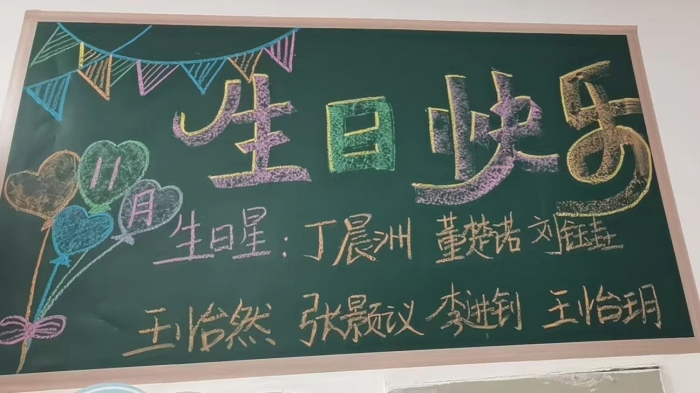 生日快乐
11月
生日星：丁晨洲 董楚诺 刘钰垚
王怡然 张景颢议 李进钊 王怡玥